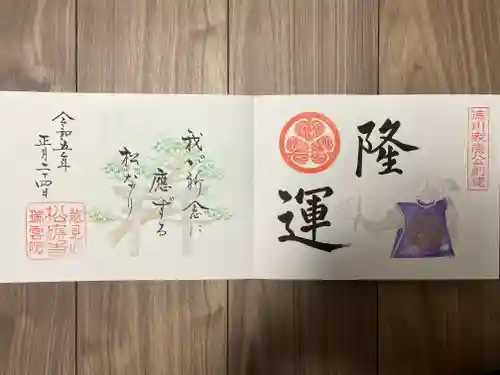 徳川家康公創建
隆
運
我が祈念に
應ずる
松なり
令和五年
正月二十四日
松應寺
瑞雲院